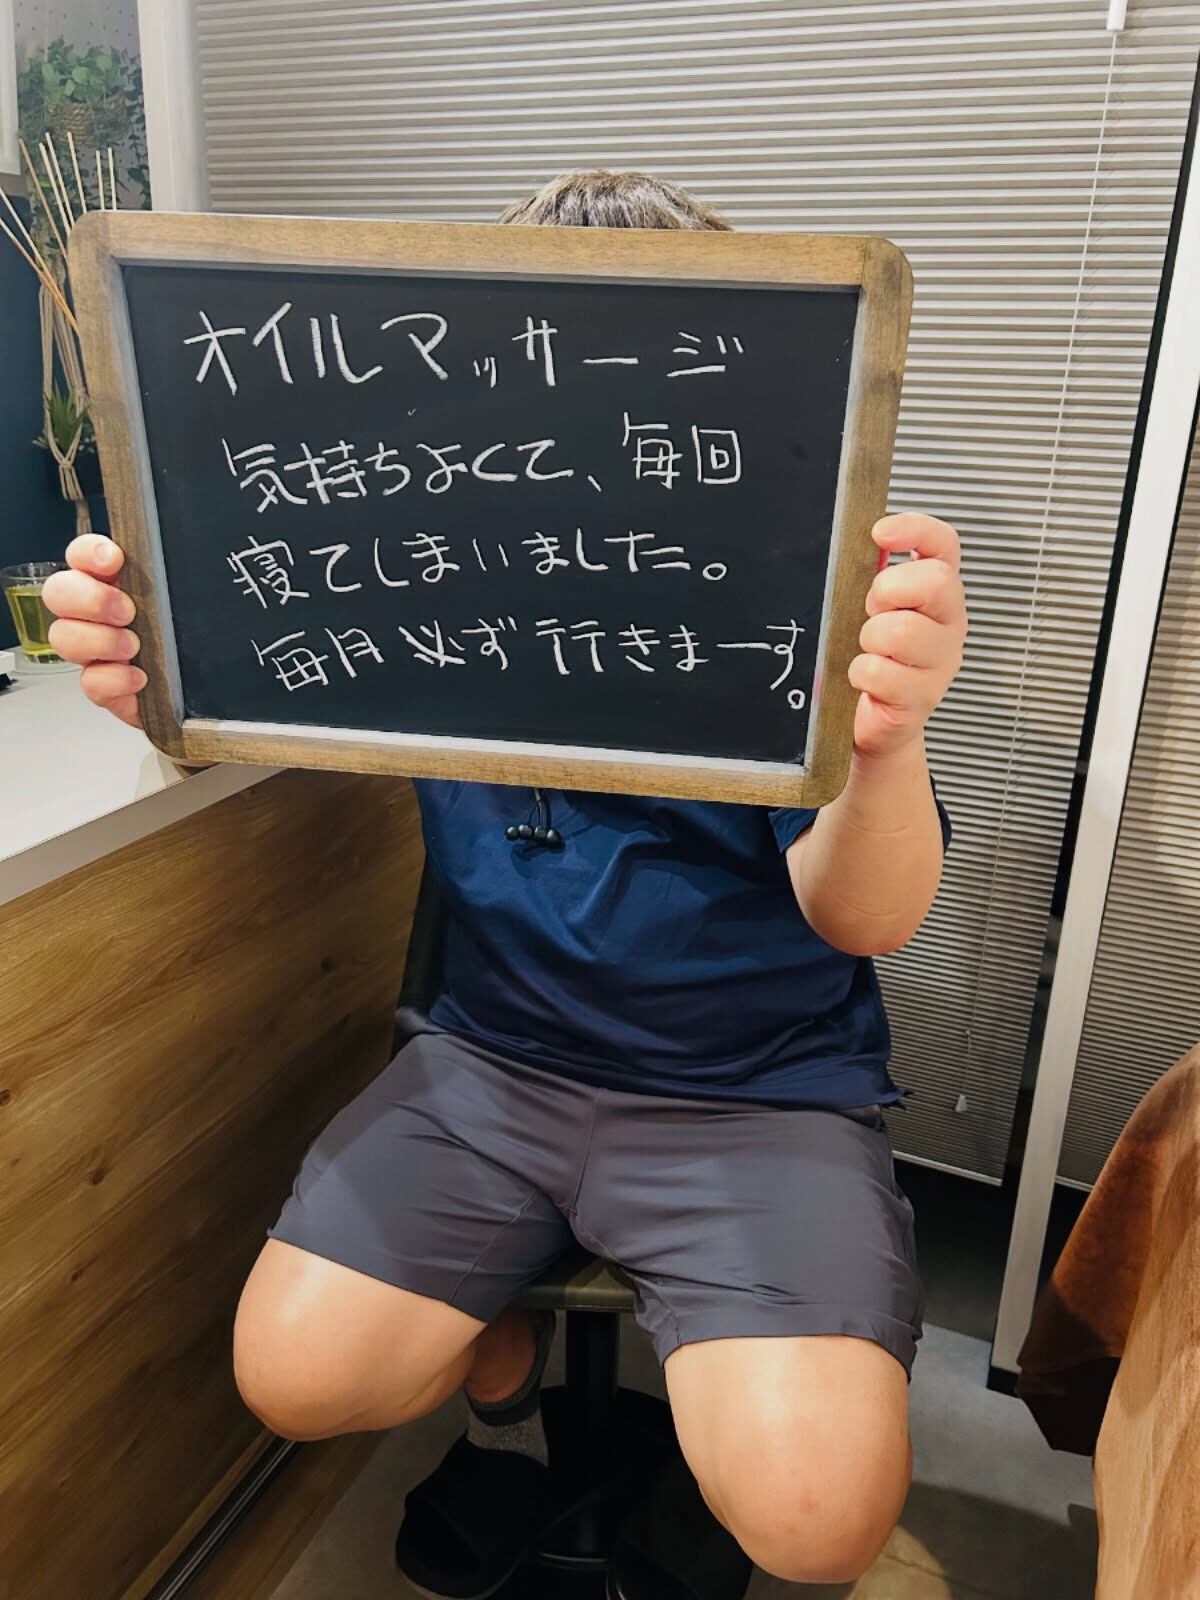 オイルマッサージ
気持ちよくて、毎回
寝てしまいました。
毎月必ず行きまーす。